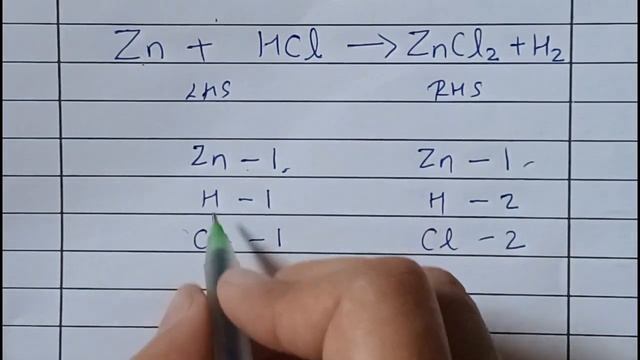 Zn + HCl → ZnCl₂ + H₂
LHS RHS
Zn - 1 Zn - 1
H - 1 H - 2
- 1 Cl - 2